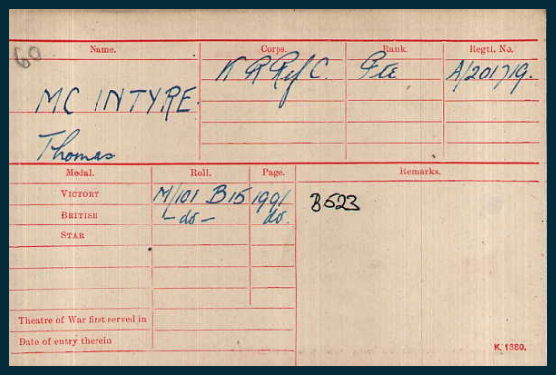 60
Name. Corps. Rank. Regtl. No.
MC INTYRE. K R Rif C. Pte A/201719.
Thomas
Medal. Roll. Page. Remarks.
VICTORY M/101 B15 1991 B523
BRITISH - do - do.
STAR
Theatre of War first served in
Date of entry therein
K. 1380.